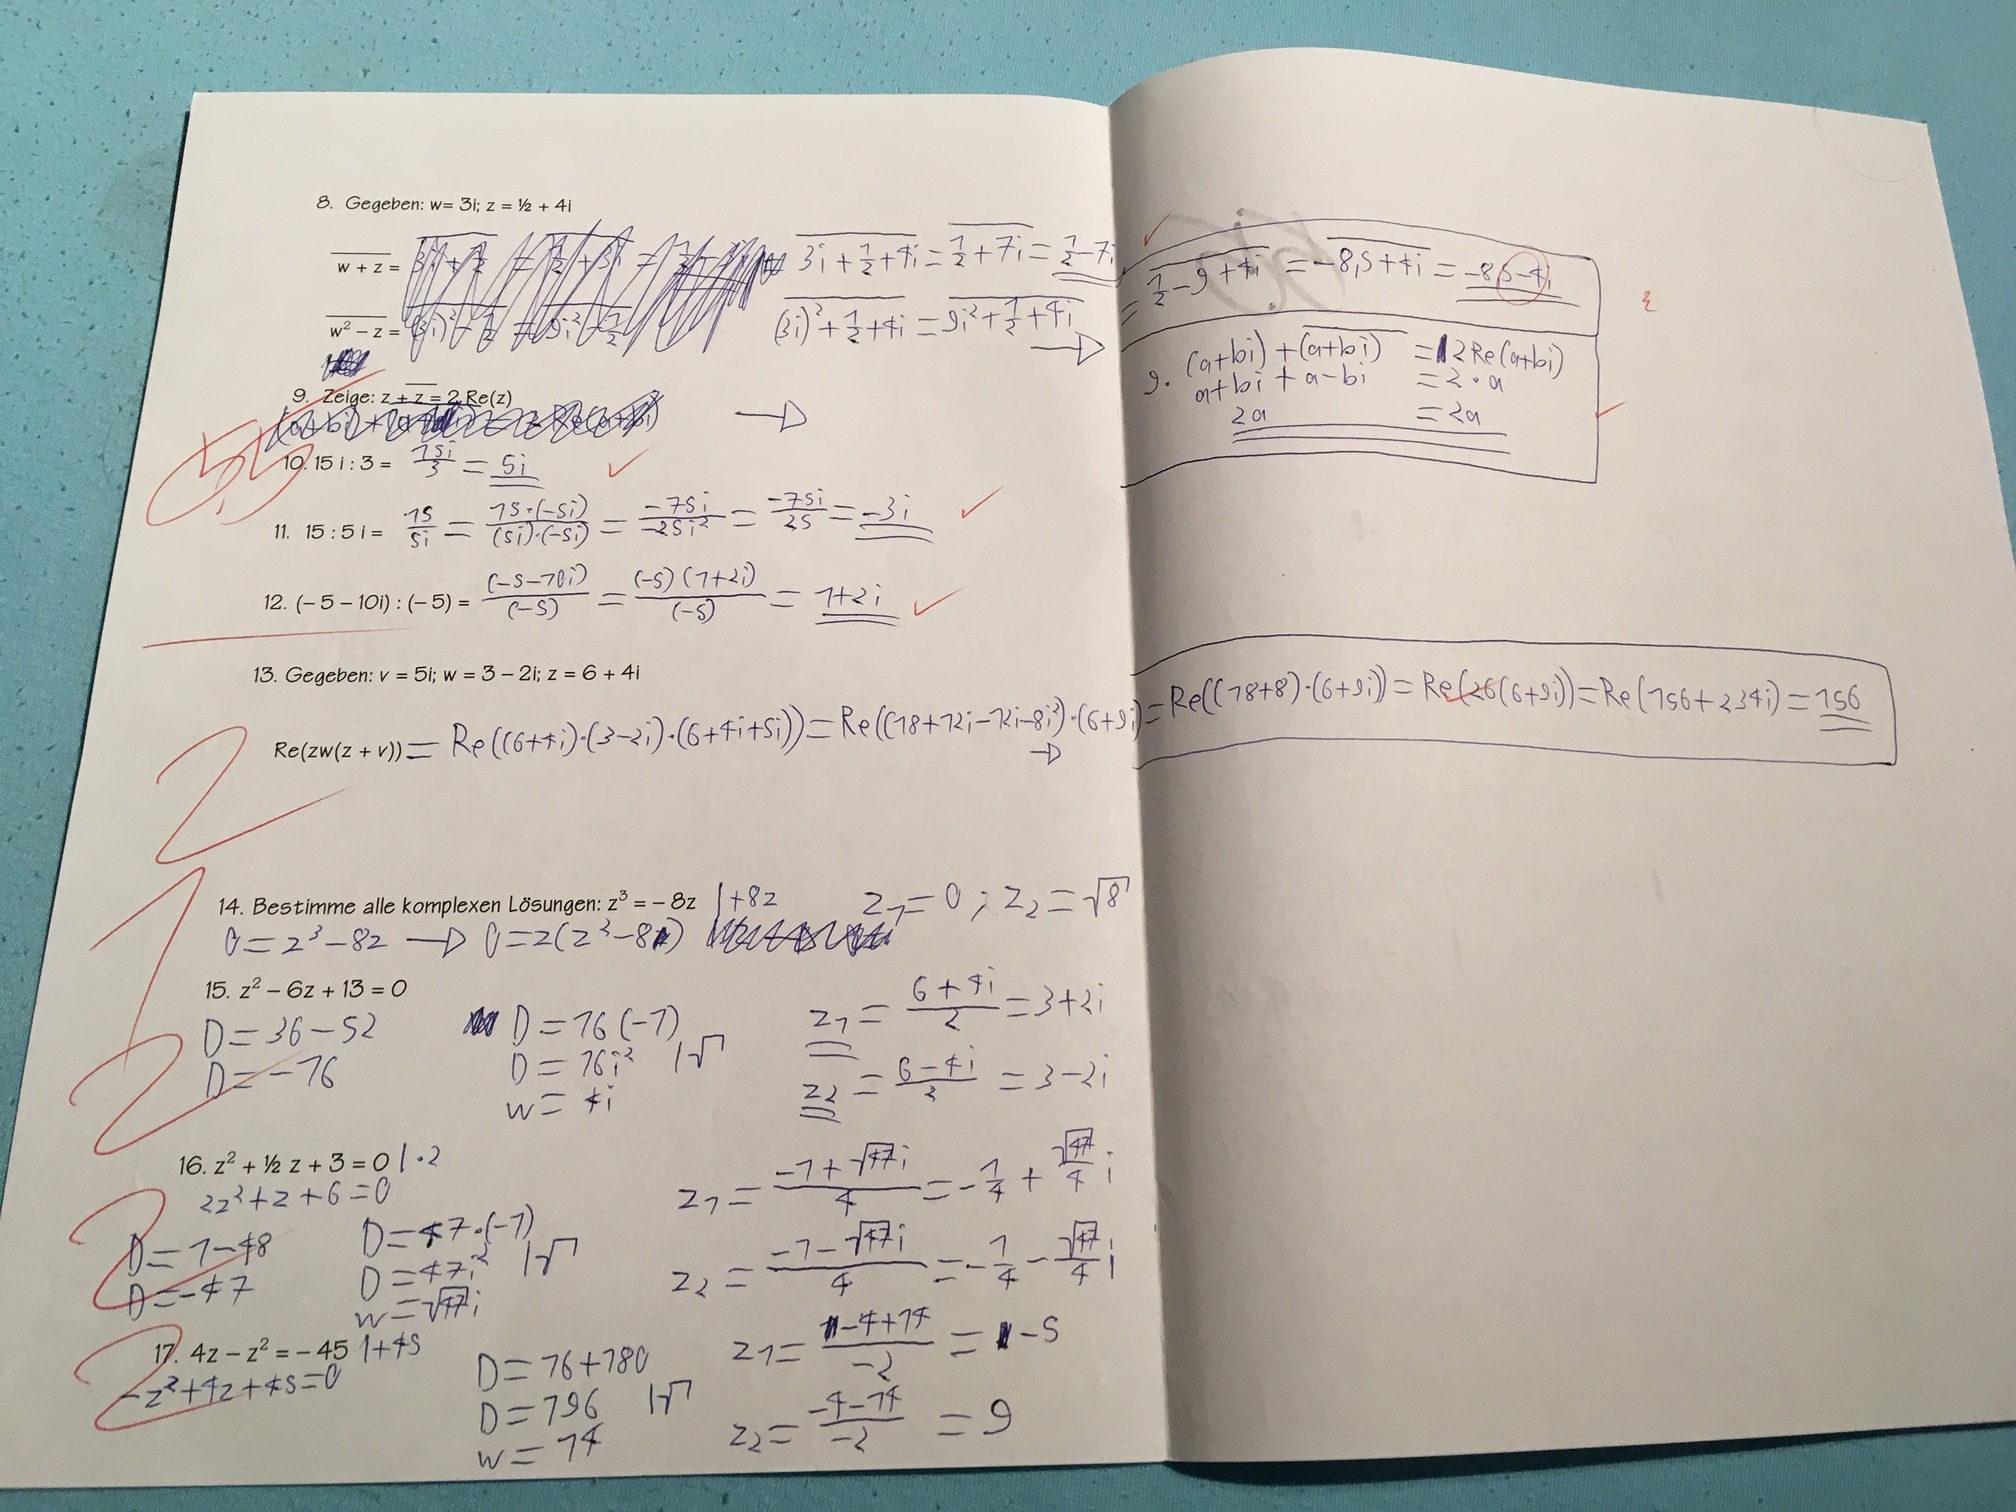 8. Gegeben: w= 3i; z = ½ + 4i
w + z = 3i + 1/2 + 4i = 1/2 + 7i = 1/2 - 7i
w² – z = (3i)² + 1/2 + 4i = 9i² + 1/2 + 4i →
= 1/2 - 9 + 4i = -8,5 + 4i = -8,5 - 4i
9. Zeige: z + z = 2 Re(z) →
9. (a+bi) + (a+bi) = 2Re(a+bi)
a+bi + a-bi = 2·a
2a = 2a
10. 15 i : 3 = 15i/3 = 5i
11. 15 : 5 i = 15/5i = 15·(-5i)/(5i)·(-5i) = -75i/-25i² = -75i/25 = -3i
12. (– 5 – 10i) : (– 5) = (-5-10i)/(-5) = (-5)(1+2i)/(-5) = 1+2i
13. Gegeben: v = 5i; w = 3 – 2i; z = 6 + 4i
Re(zw(z + v)) = Re((6+4i)·(3-2i)·(6+4i+5i)) = Re((18+12i-12i-8i²)·(6+9i) = Re((18+8)·(6+9i)) = Re(26(6+9i)) = Re(156+234i) = 156
14. Bestimme alle komplexen Lösungen: z³ = – 8z |+8z
0 = z³ - 8z → 0 = z(z² - 8) z1 = 0 ; z2 = √8
15. z² – 6z + 13 = 0
D = 36 - 52 D = 16(-1) z1 = 6+4i/2 = 3+2i
D = -16 D = 16i² |√
w = 4i z2 = 6-4i/2 = 3-2i
16. z² + ½ z + 3 = 0 |·2
2z² + z + 6 = 0 z1 = -1+√47i/4 = -1/4 + √47/4 i
D = 1-48 D = 47·(-1)
D = -47 D = 47i² |√ z2 = -1-√47i/4 = -1/4 - √47/4 i
w = √47i
17. 4z – z² = – 45 |+45
-z² + 4z + 45 = 0 D = 16+180 z1 = -4+14/-2 = -5
D = 196 |√
w = 14 z2 = -4-14/-2 = 9